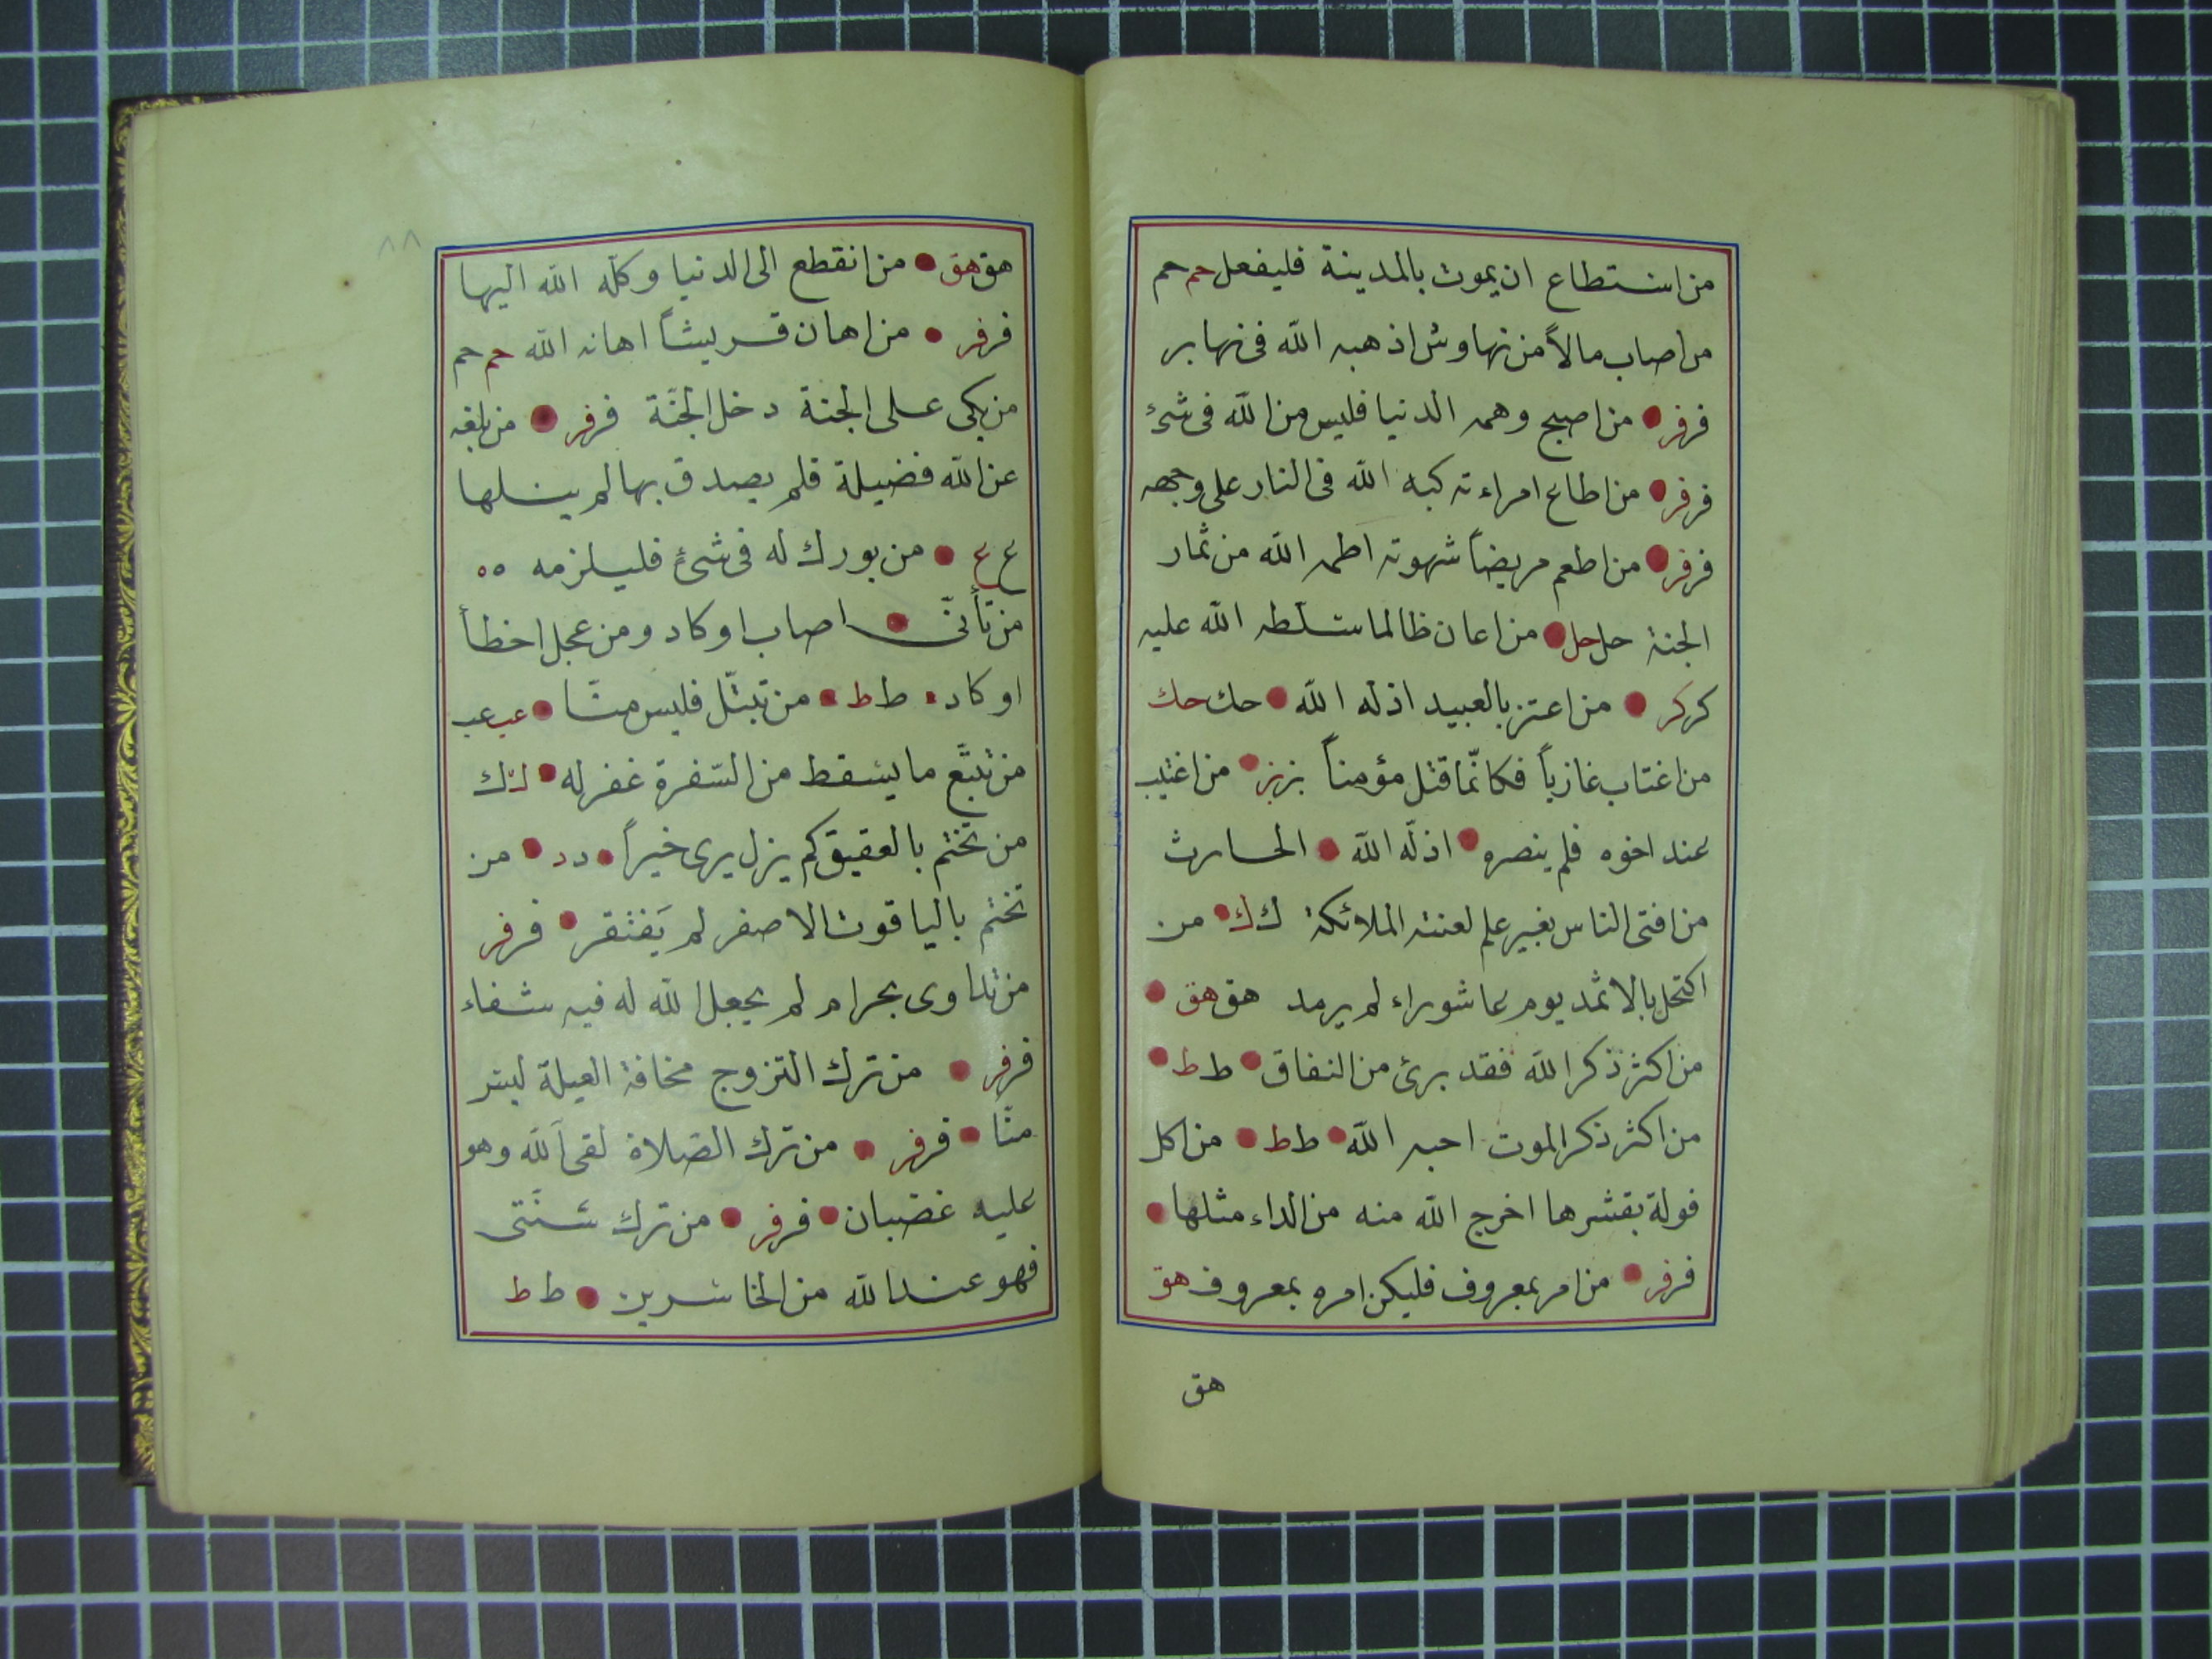 من استطاع ان يموت بالمدينة فليفعل حم حم
من اصاب مالاً من نهاوش اذهبه الله فى نهابر
فر فر من اصبح وهمه الدنيا فليس من الله فى شئ
فر فر من اطاع امراءته كبه الله فى النار على وجهه
فر فر من اطعم مريضاً شهوته اطمه الله من ثمار
الجنة حل حل من اعان ظالما سلّطه الله عليه
كر كر من اعتز بالعبيد اذله الله حك حك
من اغتاب غازياً فكانّما قتل مؤمناً بز بز من اغتيب
عند اخوه فلم ينصره اذلّه الله الحارث
من افتى الناس بغير علم لعنته الملائكة ك ك من
اكتحل بالاثمد يوم عاشوراء لم يرمد هق هق
من اكثر ذكر الله فقد برئ من النفاق ط ط
من اكثر ذكر الموت احبه الله ط ط من اكل
فولة بقشرها اخرج الله منه من الداء مثلها
فر فر من امر بمعروف فليكن امره بمعروف هق
هق
٨٨
هق هق من انقطع الى الدنيا وكلّه الله اليها
فر فر من اهان قريشاً اهانه الله حم حم
من بكى على الجنة دخل الجنّة فر فر من بلغه
عن الله فضيلة فلم يصدق بها لم ينلها
ع ع من بورك له فى شئ فليلزمه ٥٥
من تأنّى اصاب او كاد ومن عجل اخطأ
او كاد ط ط من تبتّل فليس منّا عب عب
من تتبّع ما يسقط من السّفرة غفر له ك ك
من تختم بالعقيق لم يزل يرى خيراً د د من
تختم بالياقوت الاصفر لم يَفتقر فر فر
من تداوى بحرام لم يجعل الله له فيه شفاء
فر فر من ترك التزوج مخافة العيلة ليتر
منّا فر فر من ترك الصّلاة لقى الله وهو
عليه غضبان فر فر من ترك سنّتى
فهو عند الله من الخاسرين ط ط